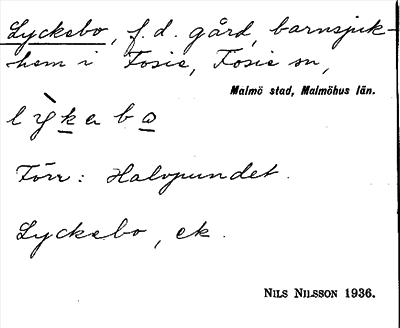 Lyckebo, f. d. gård, barnsjuk-
hem i Fosie, Fosie sn,
Malmö stad, Malmöhus län.
lỳkebo
Förr: Halvpundet.
Lyckebo, ek.
NILS NILSSON 1936.